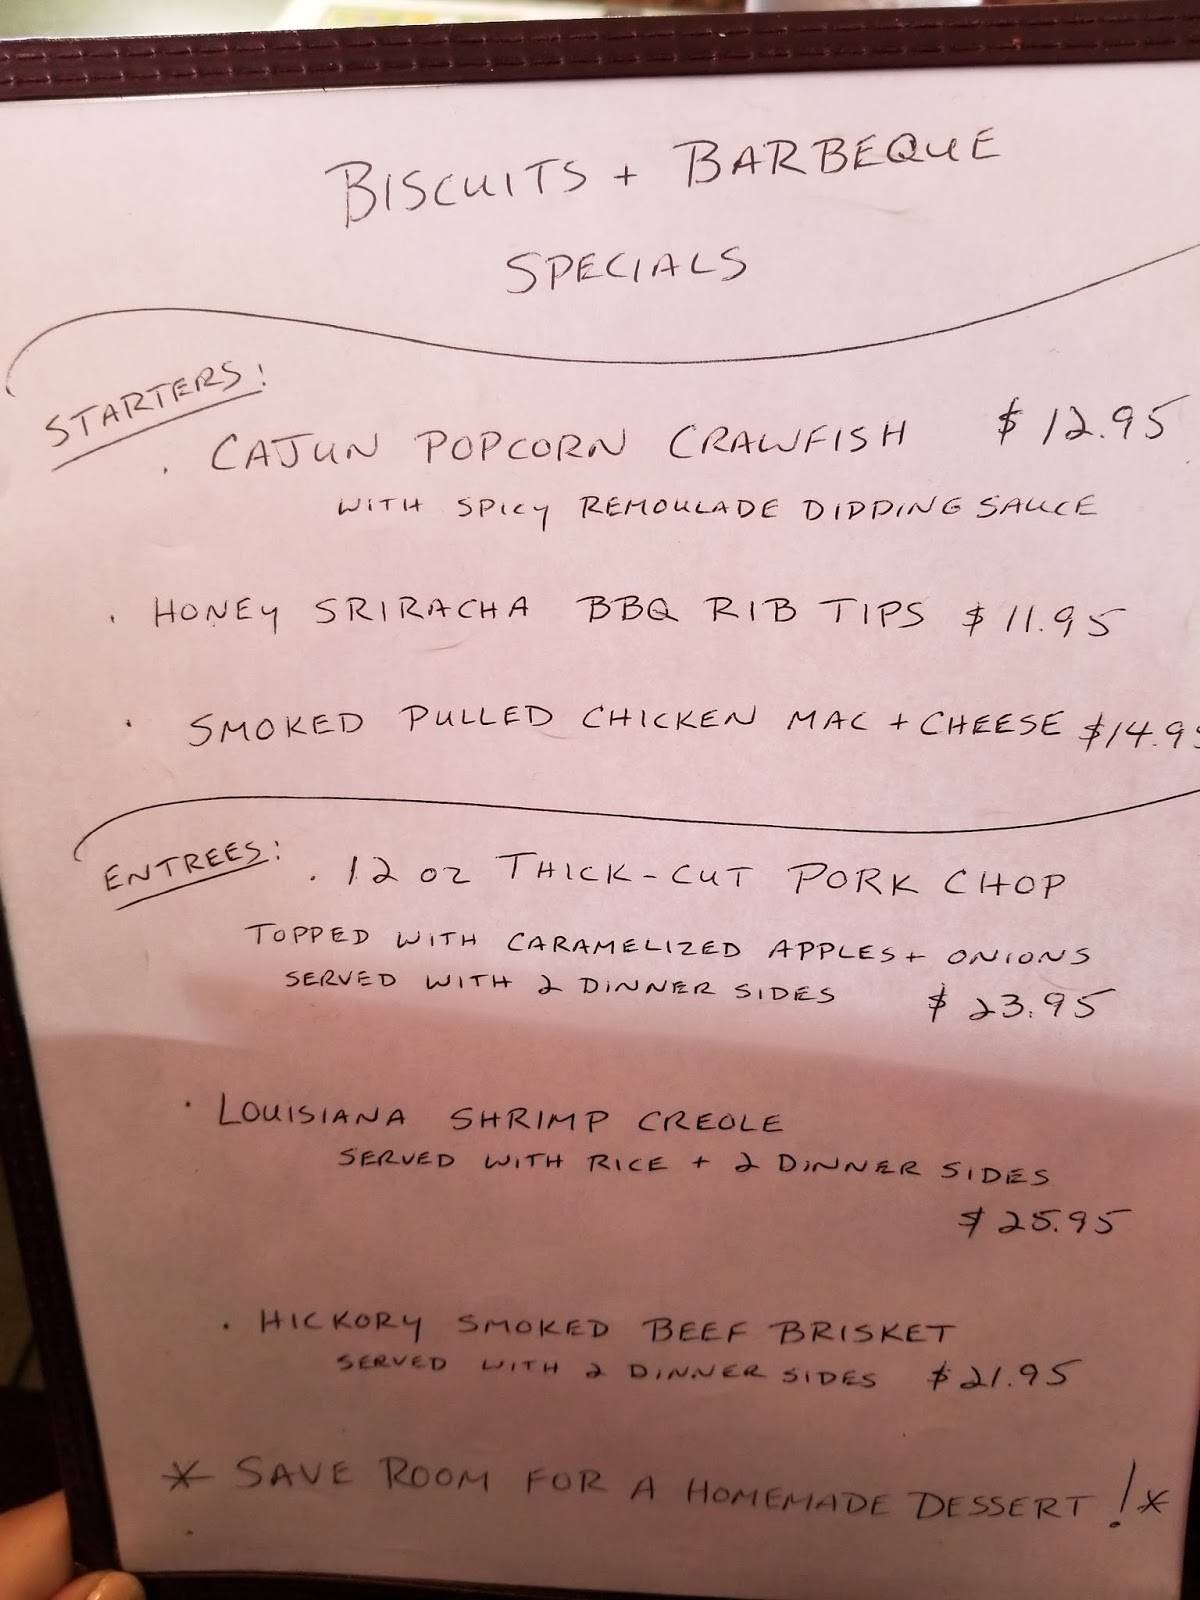 BISCUITS + BARBEQUE
SPECIALS
STARTERS:
· CAJUN POPCORN CRAWFISH $12.95
WITH SPICY REMOULADE DIPPING SAUCE
· HONEY SRIRACHA BBQ RIB TIPS $11.95
· SMOKED PULLED CHICKEN MAC + CHEESE $14.95
ENTREES: · 12 OZ THICK-CUT PORK CHOP
TOPPED WITH CARAMELIZED APPLES + ONIONS
SERVED WITH 2 DINNER SIDES $23.95
· LOUISIANA SHRIMP CREOLE
SERVED WITH RICE + 2 DINNER SIDES
$25.95
· HICKORY SMOKED BEEF BRISKET
SERVED WITH 2 DINNER SIDES $21.95
* SAVE ROOM FOR A HOMEMADE DESSERT! *